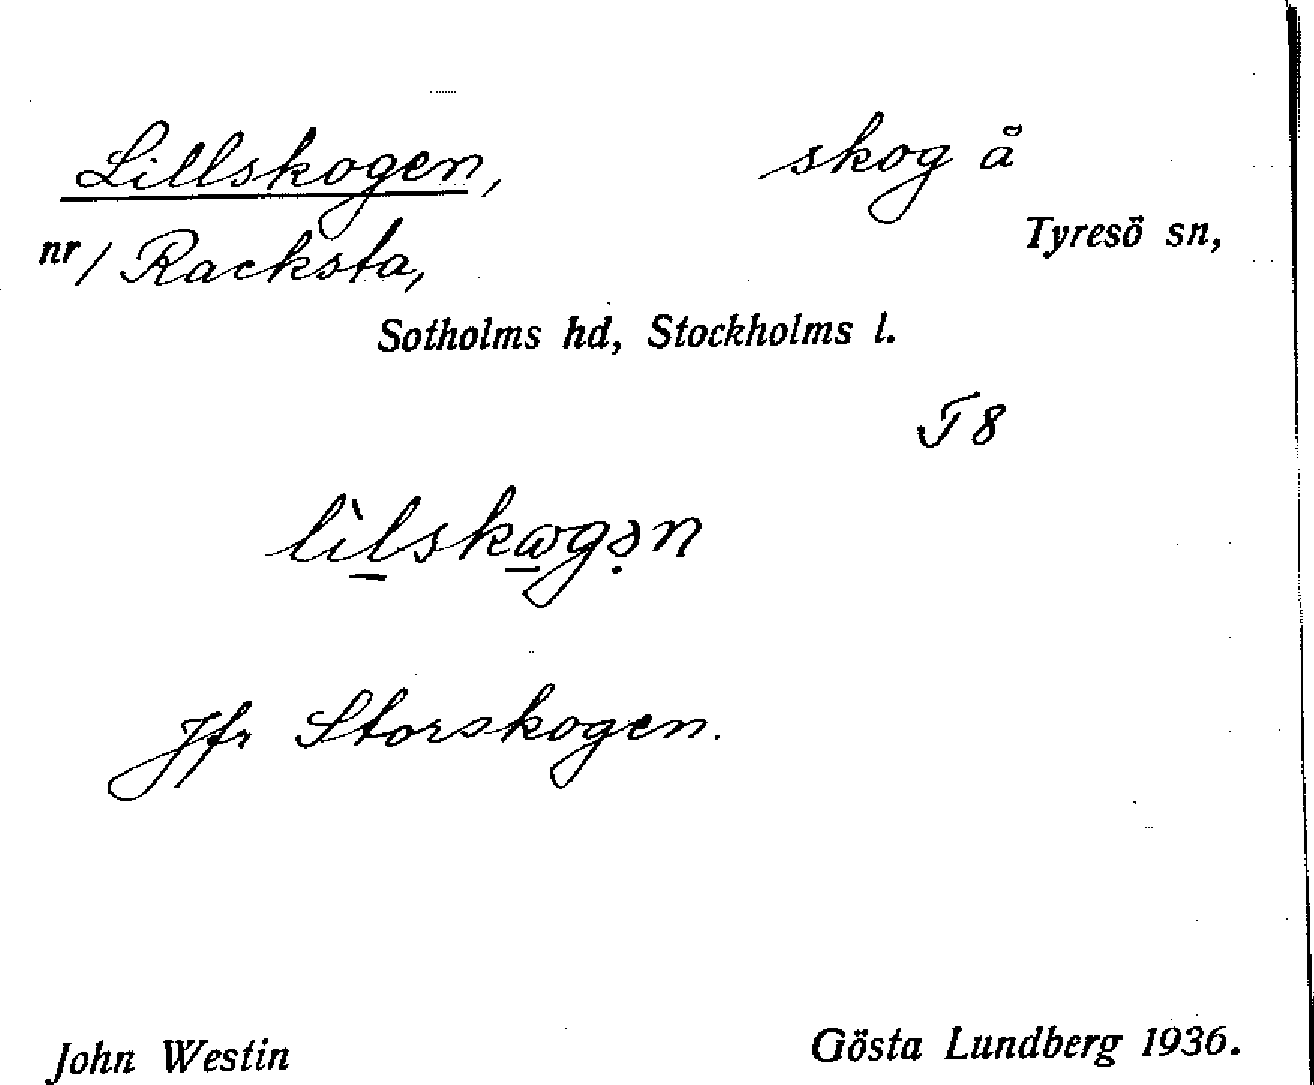 Lillskogen, skog å
nr/ Racksta, Tyresö sn,
Sotholms hd, Stockholms l.
T 8
lìl̠skω̠gə̣n
Jfr Storskogen.
John Westin Gösta Lundberg 1936.